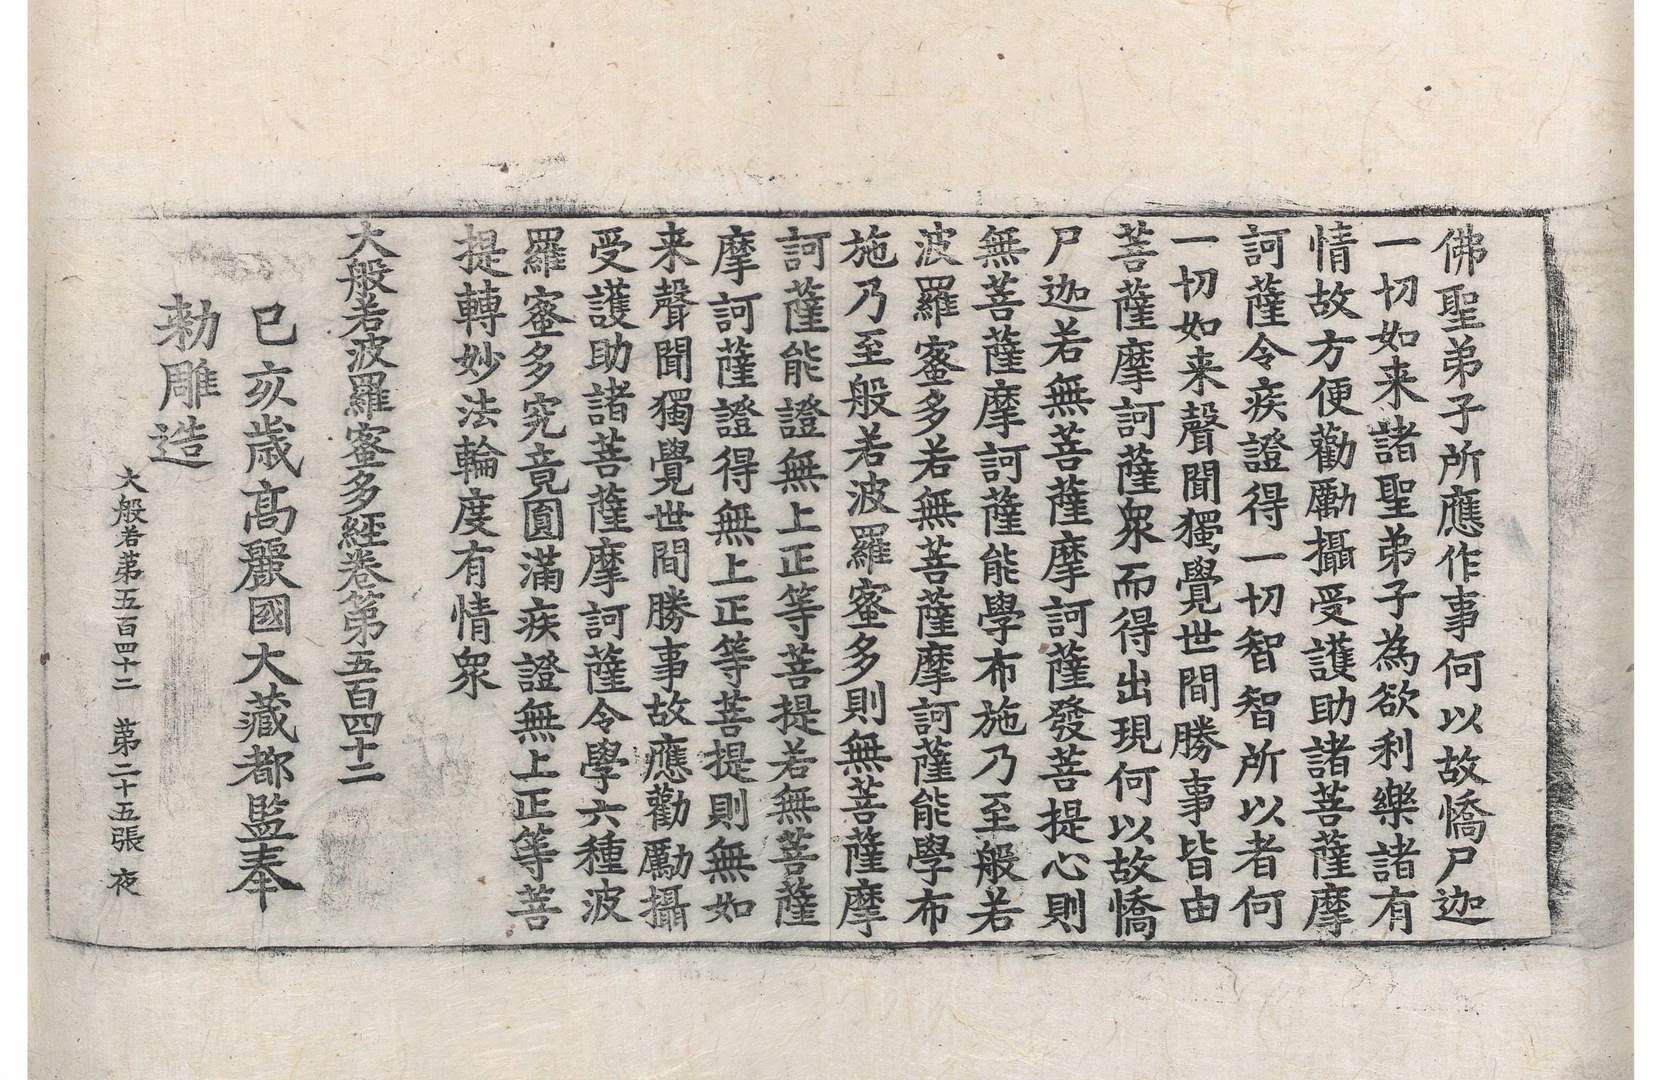 佛聖弟子所應作事何以故憍尸迦
一切如来諸聖弟子為欲利樂諸有
情故方便勸勵攝受護助諸菩薩摩
訶薩令疾證得一切智智所以者何
一切如来聲聞獨覺世間勝事皆由
菩薩摩訶薩衆而得出現何以故憍
尸迦若無菩薩摩訶薩發菩提心則
無菩薩摩訶薩能學布施乃至般若
波羅蜜多若無菩薩摩訶薩能學布
施乃至般若波羅蜜多則無菩薩摩
訶薩能證無上正等菩提若無菩薩
摩訶薩證得無上正等菩提則無如
来聲聞獨覺世間勝事故應勸勵攝
受護助諸菩薩摩訶薩令學六種波
羅蜜多究竟圓滿疾證無上正等菩
提轉妙法輪度有情衆
大般若波羅蜜多經卷第五百四十二
己亥歲高麗國大藏都監奉
勑雕造
大般若第五百四十二 第二十五張 夜